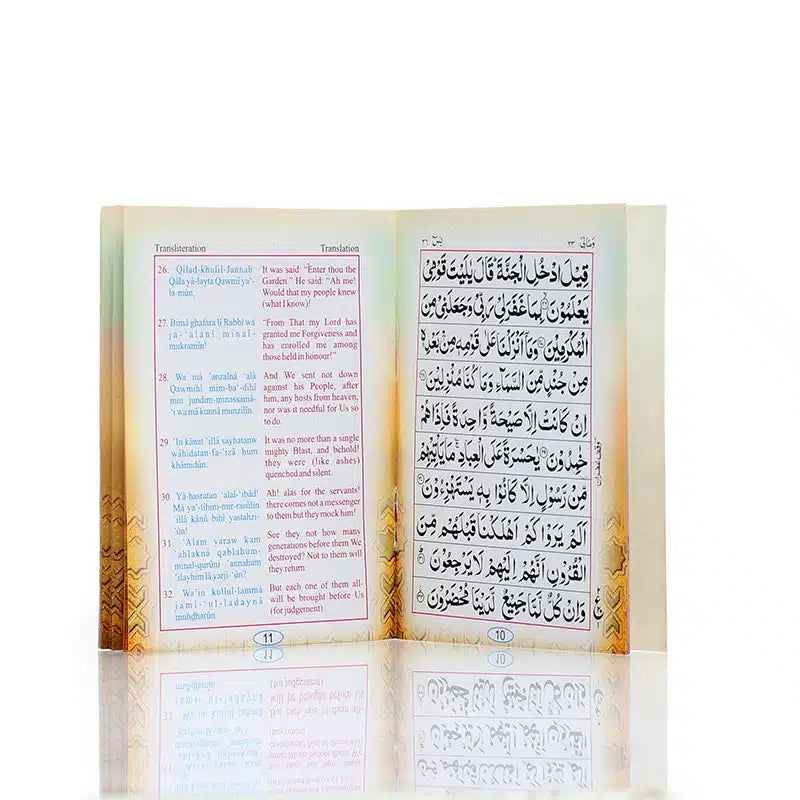 يٰسٓ ٣٦
وَمَالِیَ ٢٣
قِيْلَ ادْخُلِ الْجَنَّةَ قَالَ يٰلَيْتَ قَوْمِیْ
يَعْلَمُوْنَ بِمَا غَفَرَ لِیْ رَبِّیْ وَجَعَلَنِیْ مِنَ
الْمُكْرَمِيْنَ وَمَاۤ اَنْزَلْنَا عَلٰى قَوْمِهٖ مِنْۢ بَعْدِهٖ
مِنْ جُنْدٍ مِّنَ السَّمَآءِ وَمَا كُنَّا مُنْزِلِيْنَ
اِنْ كَانَتْ اِلَّا صَيْحَةً وَّاحِدَةً فَاِذَا هُمْ
خٰمِدُوْنَ يٰحَسْرَةً عَلَى الْعِبَادِ مَا يَاْتِيْهِمْ
مِّنْ رَّسُوْلٍ اِلَّا كَانُوْا بِهٖ يَسْتَهْزِءُوْنَ
اَلَمْ يَرَوْا كَمْ اَهْلَكْنَا قَبْلَهُمْ مِّنَ
الْقُرُوْنِ اَنَّهُمْ اِلَيْهِمْ لَا يَرْجِعُوْنَ
وَاِنْ كُلٌّ لَّمَّا جَمِيْعٌ لَّدَيْنَا مُحْضَرُوْنَ
10
Transliteration
Translation
26. Qīlad-khulil-Jannah
Qāla yā-layta Qawmī ya'-
la-mūn,
It was said: “Enter thou the
Garden.” He said: “Ah me!
Would that my people knew
(what I know)!
27. Bimā ghafara lī Rabbī wa
ja-'alanī minal-
mukramīn!
“From That my Lord has
granted me Forgiveness and
has enrolled me among
those held in honour!”
28. Wa mā 'anzalnā 'alā
Qawmihī mim-ba'-dihī
min jundim-minassamā-
'i wa mā kunnā munzilīn.
And We sent not down
against his People, after
him, any hosts from heaven,
nor was it needful for Us so
to do.
29. 'In kānat 'illā sayhatanw
wāhidatan-fa-'izā hum
khāmidūn.
It was no more than a single
mighty Blast, and behold!
they were (like ashes)
quenched and silent.
30. Yā-hasratan 'alal-'ibād!
Mā ya'-tīhim-mir-rasūlin
'illā kānū bihī yastahzi-
'ūn!
Ah! alas for the servants!
there comes not a messenger
to them but they mock him!
31. 'Alam yaraw kam
'ahlaknā qablahum-
minal-qurūni 'annahum
'ilayhim lā yarji-'ūn?
See they not how many
generations before them We
destroyed? Not to them will
they return:
32. Wa'in kullul-lammā
jamī-'ul-ladaynā
muhdharūn.
But each one of them all-
will be brought before Us
(for judgement)
11